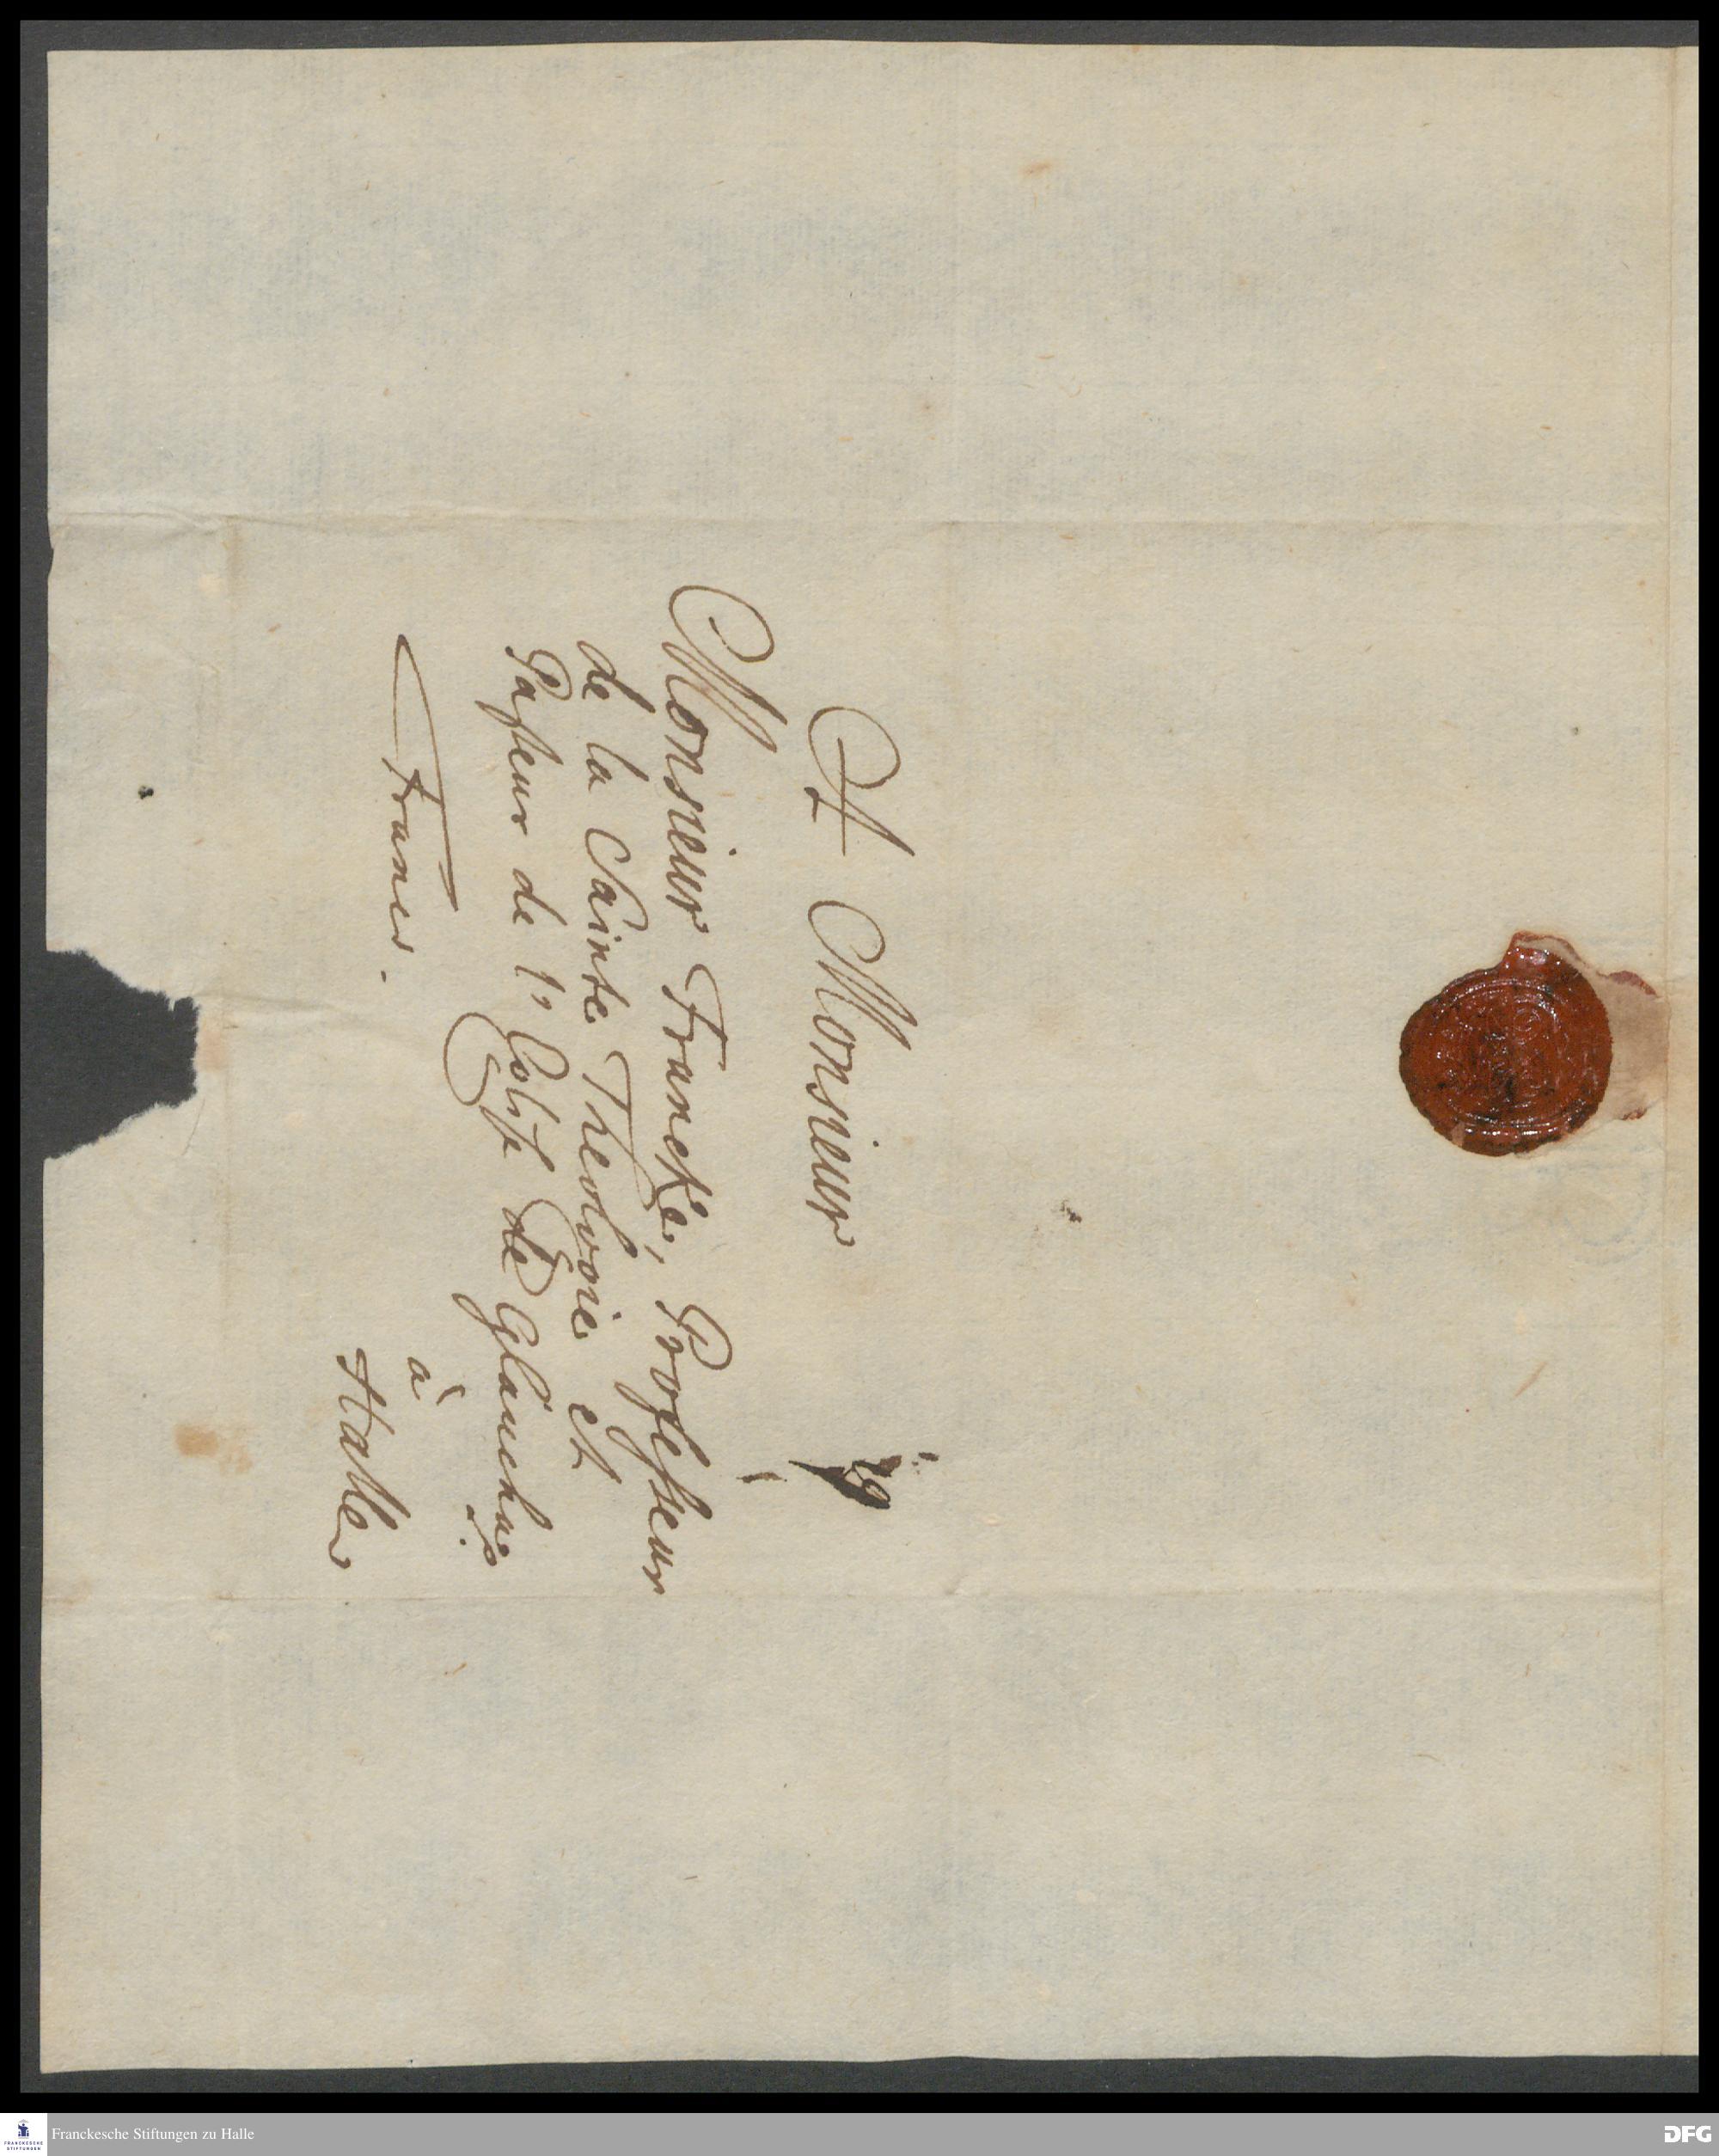 A Monsieur
Monsieur Francke, Professeur
de la Sainte Theologie et
Pasteur de l'
de Glaucha
à
Franco.
Halle
Franckesche Stiftungen zu Halle
FRANCKESCHE
STIFTUNGEN
DFG